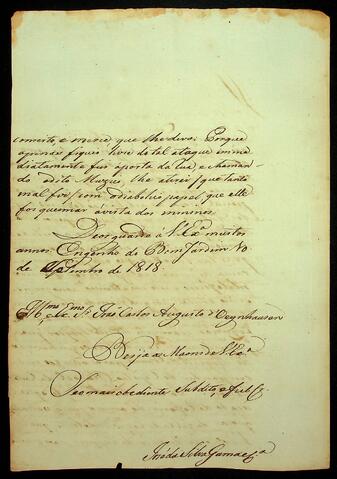 conceito, e mercê que lhe devo. Eu que
apenas fiquei livre do tal ataque imme
diatamente fui aporta da rua, e chaman-
do dito Muzus, lhe atirei
mal fiz com odiabolico papel, que elle
foi queimar avista dos mesmos.
Deos guarde á V. Exª muitos
annos. Engenho do Bom Jardim 10
de Setembro de 1818
Illmo e Exmo Sr João Carlos Augusto d'Oeynhausen
Beija as Maons de V. Exª
Seo mais obediente Subdito, e fiel Cr.
José da Silva Gama e Cª